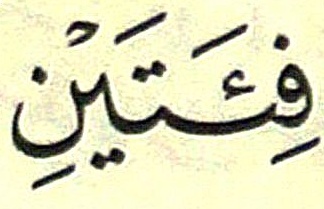 فِئَتَيْنِ